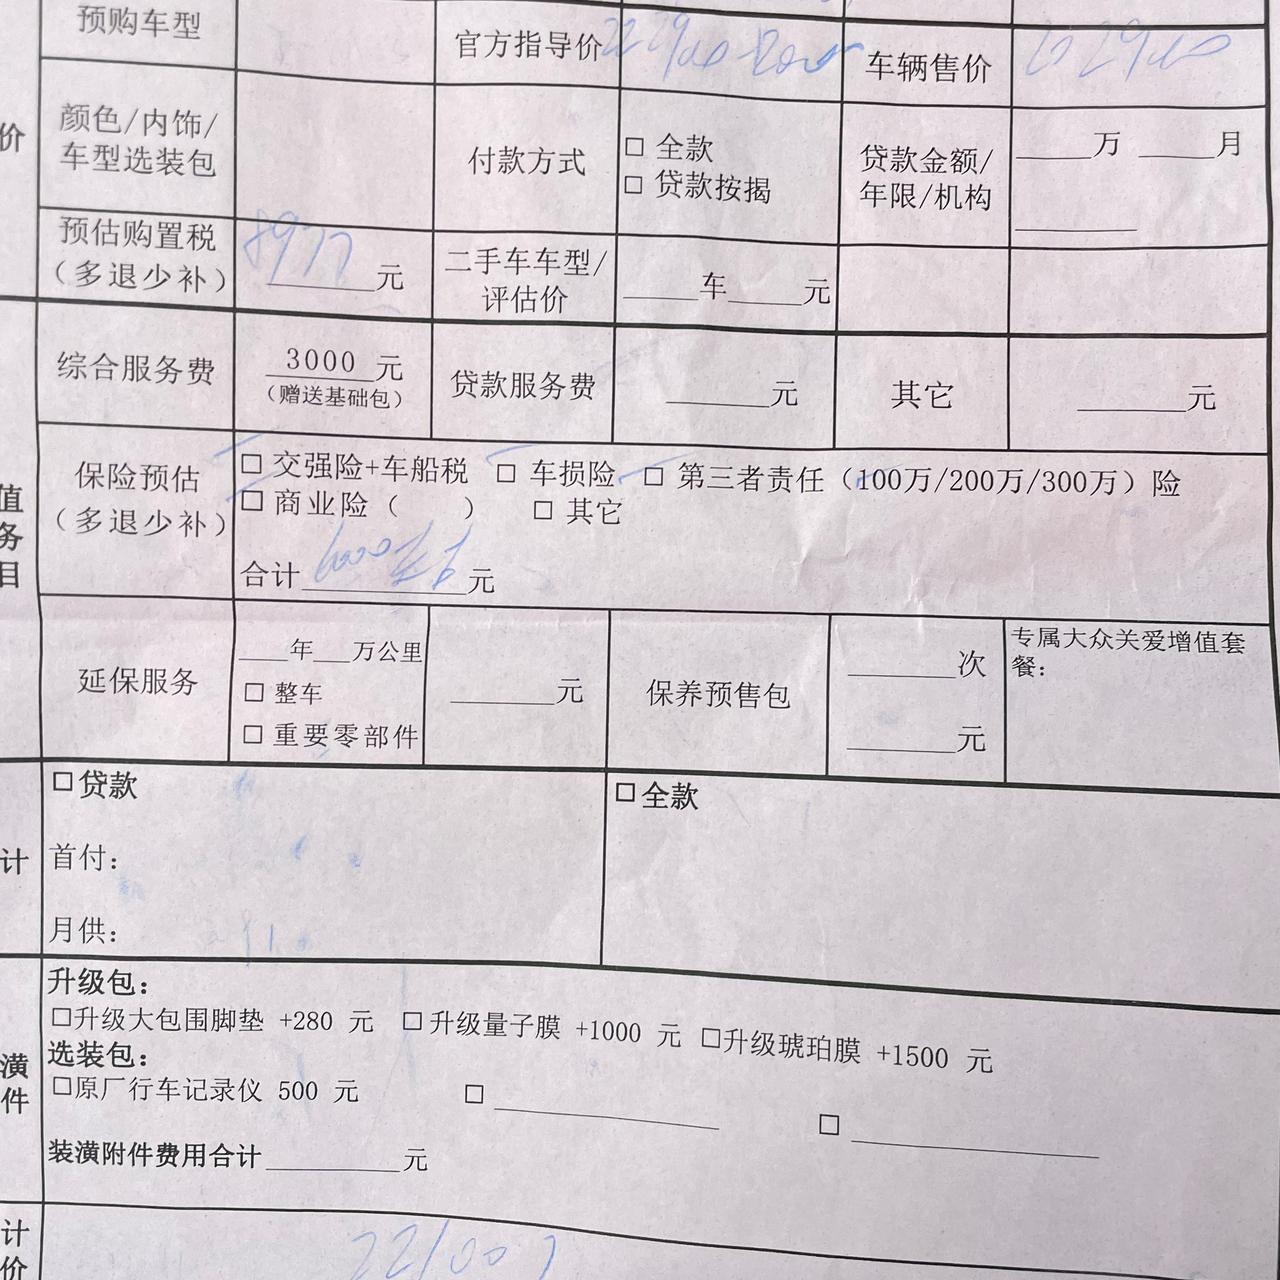 预购车型
官方指导价
车辆售价
价
颜色/内饰/
车型选装包
付款方式
□ 全款
□ 贷款按揭
贷款金额/
年限/机构
____万 ____月
预估购置税
（多退少补）
8977 元
二手车车型/
评估价
____车____元
综合服务费
3000 元
（赠送基础包）
贷款服务费
____元
其它
____元
值
务
目
保险预估
（多退少补）
□ 交强险+车船税 □ 车损险 □ 第三者责任（100万/200万/300万）险
□ 商业险（ ） □ 其它
合计 6000 元
延保服务
___年___万公里
□ 整车
□ 重要零部件
____元
保养预售包
____次
____元
专属大众关爱增值套
餐：
计
□贷款
首付：
月供：
□全款
潢
件
升级包：
□升级大包围脚垫 +280 元 □升级量子膜 +1000 元 □升级琥珀膜 +1500 元
选装包：
□原厂行车记录仪 500 元 □ ____ □ ____
装潢附件费用合计____元
计
价